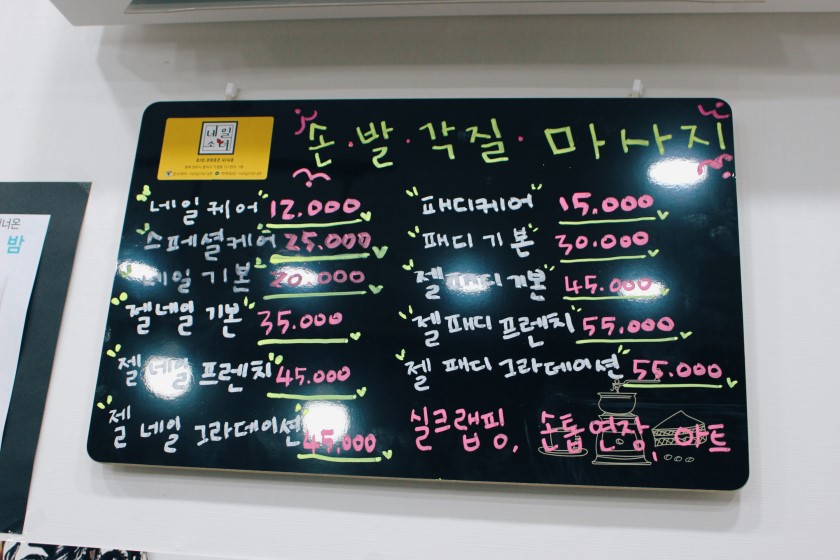 네일
소녀
손·발·각질·마사지
네일케어 12.000
스페셜케어 25.000
네일 기본 20.000
젤네일 기본 35.000
젤 네일 프렌치 45.000
젤 네일 그라데이션 45.000
패디케어 15.000
패디 기본 30.000
젤패디 기본 45.000
젤 패디 프렌치 55.000
젤 패디 그라데이션 55.000
실크랩핑, 손톱연장, 아트
밤